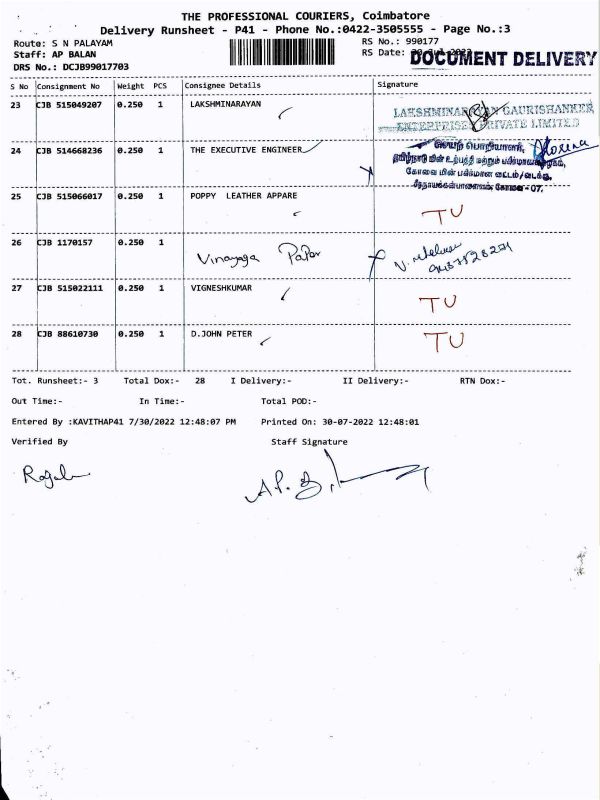 THE PROFESSIONAL COURIERS, Coimbatore
Delivery Runsheet - P41 - Phone No.:0422-3505555 - Page No.:3
Route: S N PALAYAM
Staff: AP BALAN
DRS No.: DCJB99017703
RS No.: 990177
RS Date: 30-Jul-2022
DOCUMENT DELIVERY
S No Consignment No Weight PCS Consignee Details Signature
23 CJB 515049207 0.250 1 LAKSHMINARAYAN
LAKSHMINARAYAN GAURISHANKER
ENTERPRISES PRIVATE LIMITED
24 CJB 514668236 0.250 1 THE EXECUTIVE ENGINEER
செயற் பொறியாளர்,
தமிழ்நாடு மின் உற்பத்தி மற்றும் பகிர்மானக்கழகம்,
கோவை மின் பகிர்மான வட்டம்/வடக்கு,
சீரநாயக்கன்பாளையம், கோவை - 07.
25 CJB 515066017 0.250 1 POPPY LEATHER APPARE TU
26 CJB 1170157 0.250 1 Vinayaga Paper
27 CJB 515022111 0.250 1 VIGNESHKUMAR TU
28 CJB 88610730 0.250 1 D.JOHN PETER TU
Tot. Runsheet:- 3 Total Dox:- 28 I Delivery:- II Delivery:- RTN Dox:-
Out Time:- In Time:- Total POD:-
Entered By :KAVITHAP41 7/30/2022 12:48:07 PM Printed On: 30-07-2022 12:48:01
Verified By Staff Signature